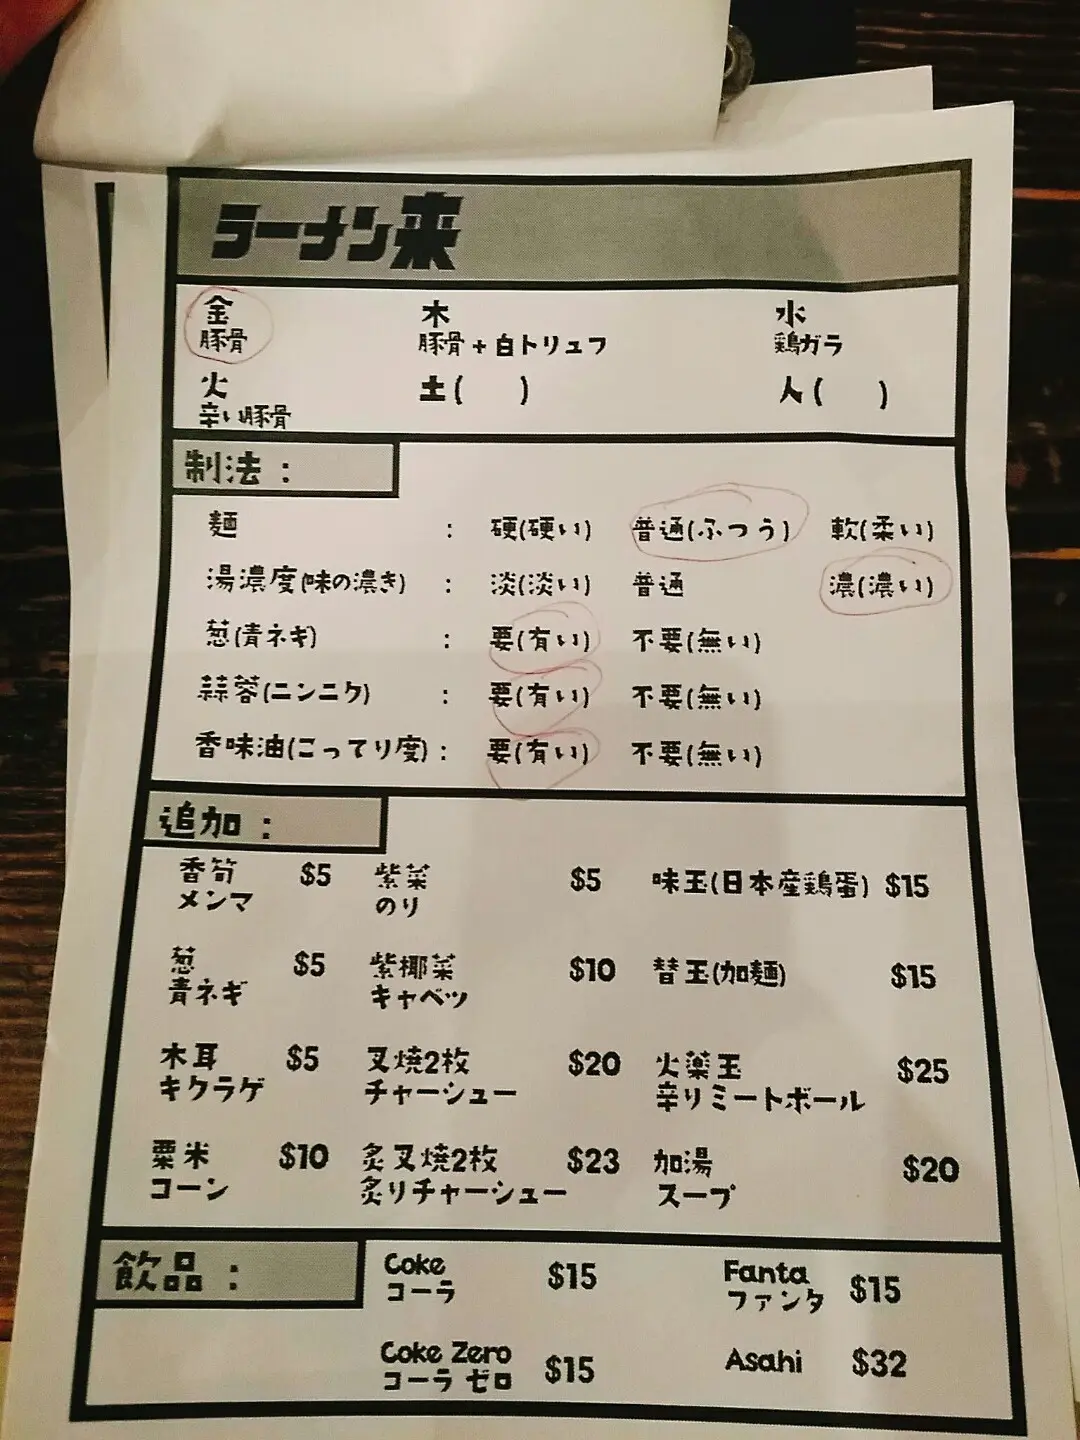 ラーメン来
金 木 水
豚骨 豚骨+白トリュフ 鶏ガラ
火 土( ) 人( )
辛い豚骨
制法：
麵 : 硬(硬い) 普通(ふつう) 軟(柔い)
湯濃度(味の濃き) : 淡(淡い) 普通 濃(濃い)
葱(青ネギ) : 要(有い) 不要(無い)
蒜蓉(ニンニク) : 要(有い) 不要(無い)
香味油(こってり度) : 要(有い) 不要(無い)
追加：
香筍 $5 紫菜 $5 味玉(日本産鶏蛋) $15
メンマ のり
葱 $5 紫椰菜 $10 替玉(加麵) $15
青ネギ キャベツ
木耳 $5 叉焼2枚 $20 火薬玉 $25
キクラゲ チャーシュー 辛りミートボール
粟米 $10 炙叉焼2枚 $23 加湯 $20
コーン 炙りチャーシュー スープ
飲品： Coke $15 Fanta $15
コーラ ファンタ
Coke Zero $15 Asahi $32
コーラ ゼロ